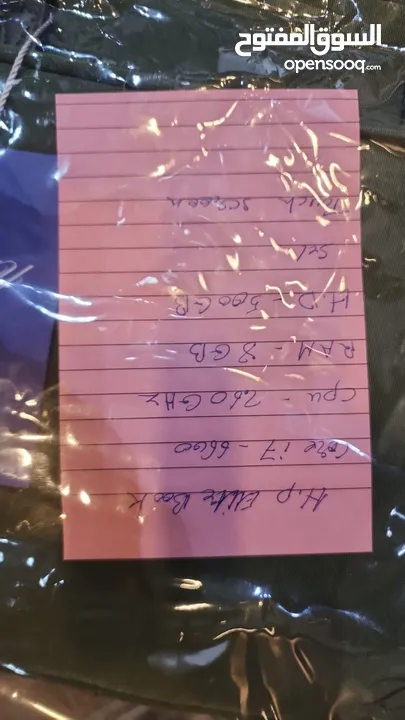 السوق المفتوح
opensooq.com
H.p Elite Book
Core i7 - 6600
Cpu - 260 GHz
RAM - 8 GB
H.D - 500 GB
Touch screen